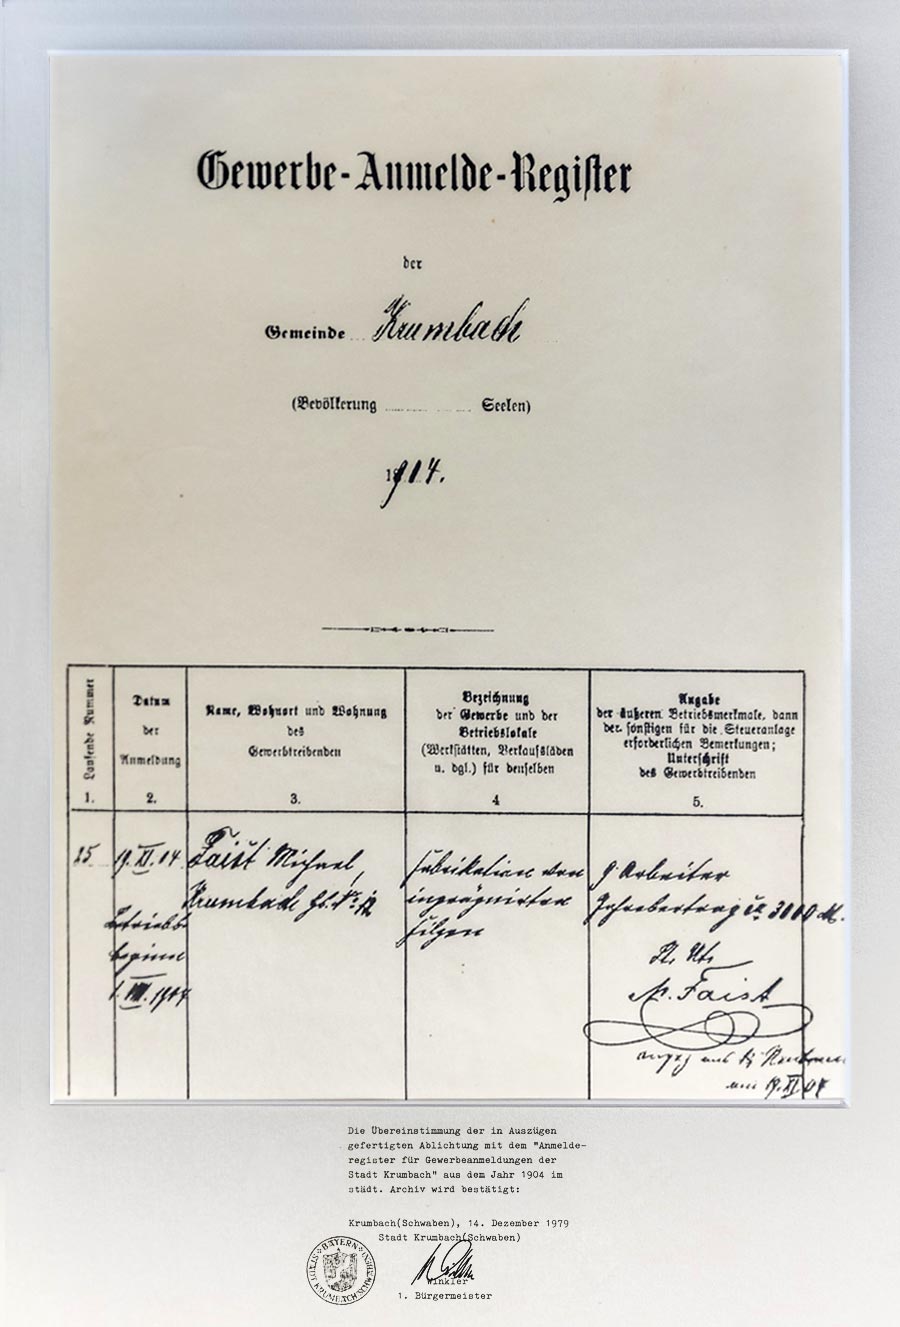 Gewerbe-Anmelde-Register
der
Gemeinde Krumbach
(Bevölkerung Seelen)
1904.
Laufende Nummer
1.
Datum
der
Anmeldung
2.
Name, Wohnort und Wohnung
des
Gewerbtreibenden
3.
Bezeichnung
der Gewerbe und der
Betriebslokale
(Werkstätten, Verkaufsläden
u. dgl.) für denselben
4
Angabe
der äußeren Betriebsmerkmale, dann
der sonstigen für die Steueranlage
erforderlichen Bemerkungen;
Unterschrift
des Gewerbtreibenden
5.
25
19. XI. 04
Betriebs
beginn
1. VIII. 1904
Faist Michael,
Krumbach Hs. No.
Fabrikation von
imprägnirten
Filzen
9 Arbeiter
Jahresertrag 3000 M.
M. Faist
am 19. XI. 04
Die Übereinstimmung der in Auszügen
gefertigten Ablichtung mit dem "Anmelde-
register für Gewerbeanmeldungen der
Stadt Krumbach" aus dem Jahr 1904 im
städt. Archiv wird bestätigt:
Krumbach(Schwaben), 14. Dezember 1979
Stadt Krumbach(Schwaben)
BAYERN
STADT KRUMBACH(SCHWABEN)
Winkler
1. Bürgermeister